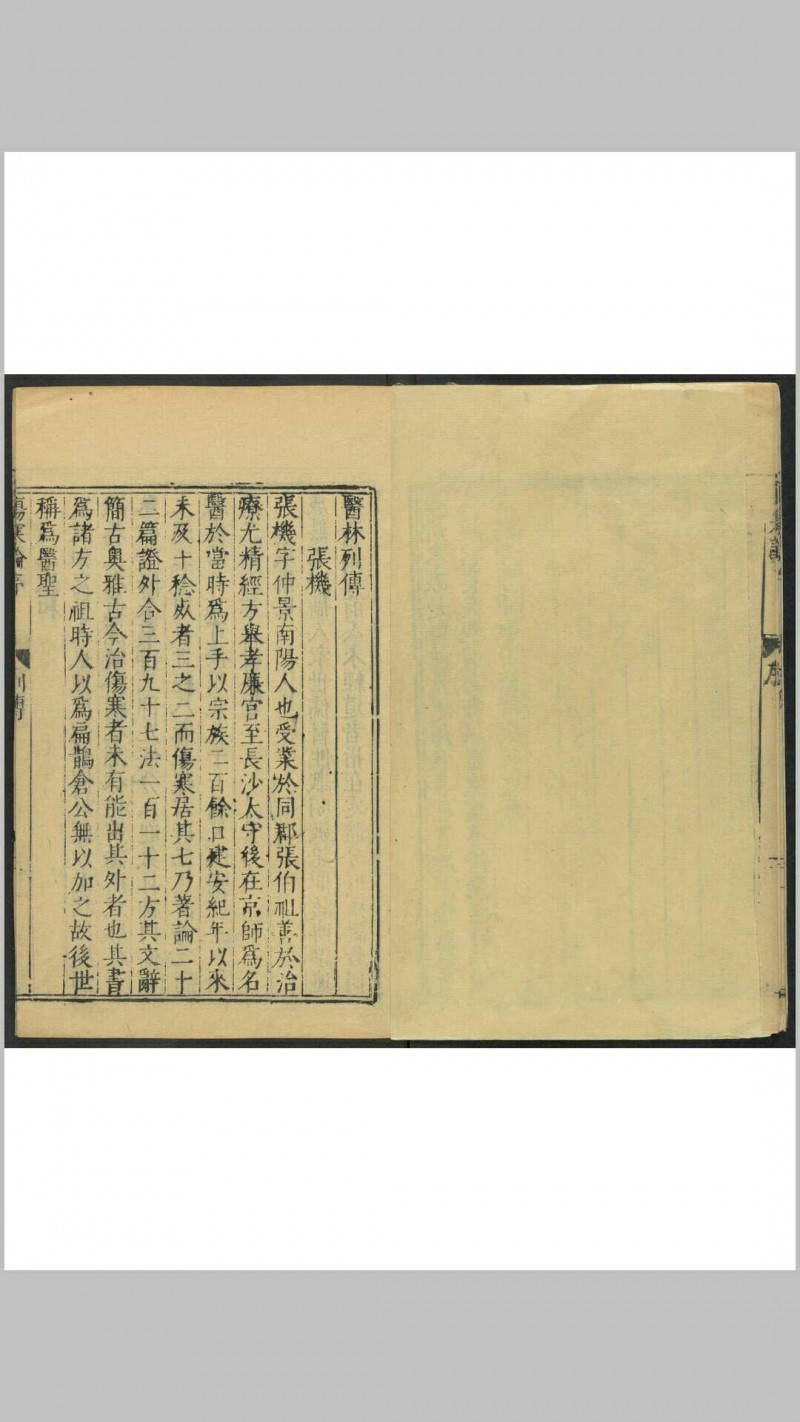 醫林列傳
張機
張機字仲景南陽人也受業於同郡張伯祖善於治
療尤精經方舉孝廉官至長沙太守後在京師爲名
醫於當時爲上手以宗族二百餘口建安紀年以來
未及十稔死者三之二而傷寒居其七乃著論二十
二篇證外合三百九十七法一百一十二方其文辭
簡古奥雅古今治傷寒者未有能出其外者也其書
爲諸方之祖時人以爲扁鵲倉公無以加之故後世
稱爲醫聖
傷寒論序 列傳